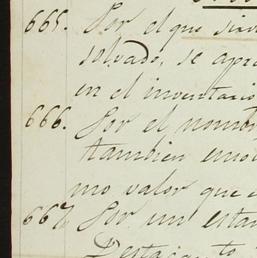 665. Por el que sirv
solvado, se apr
en el inventario
666. Por el nom
tambien en
mo valor que e
667. Por un esta
Destaca to